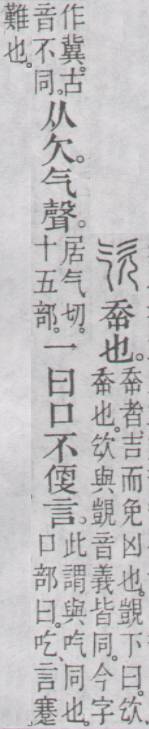 𡴘也。𡴘者、吉而免凶也。覬下曰。㰟𡴘也。㰟與覬音義皆同。今字
作冀。古音不同。从欠。气聲。居气切。十五部。一曰口不便言。此謂與吃同也。口部曰。吃、言蹇
難也。